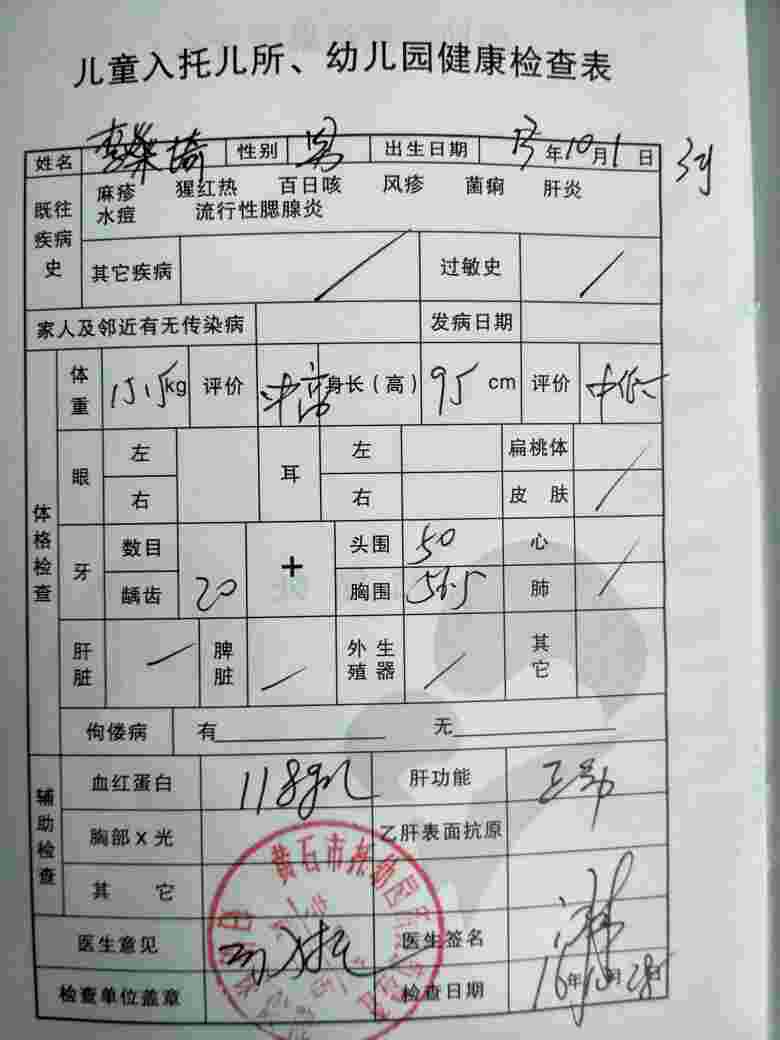 儿童入托儿所、幼儿园健康检查表
姓名 性别 男 出生日期 13年10月1日 3岁
既往疾病史 麻疹 猩红热 百日咳 风疹 菌痢 肝炎
水痘 流行性腮腺炎
其它疾病 / 过敏史 /
家人及邻近有无传染病 发病日期
体格检查
体重 15.15kg 评价 中高 身长(高) 95 cm 评价 中低
眼 左 耳 左 扁桃体 /
右 右 皮肤
牙 数目 + 头围 50 心 /
龋齿 20 胸围 56.5 肺
肝脏 / 脾脏 / 外生殖器 / 其它
佝偻病 有 无
辅助检查
血红蛋白 118g/L 肝功能 正常
胸部X光 乙肝表面抗原
其它
医生意见 可入托 医生签名
检查单位盖章 检查日期 16年10月28日
黄石市托幼